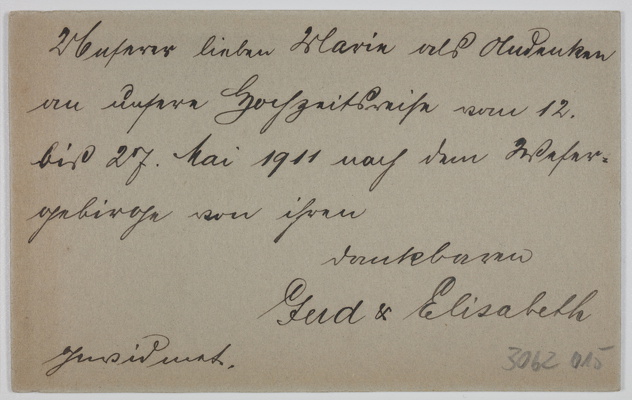 Unserer lieben Marie als Andenken
an unsere Hochzeitsreise vom 12.
bis 27. Mai 1911 nach dem Weser-
gebirge von ihren
dankbaren
Gerd & Elisabeth
gewidmet.
3062 015